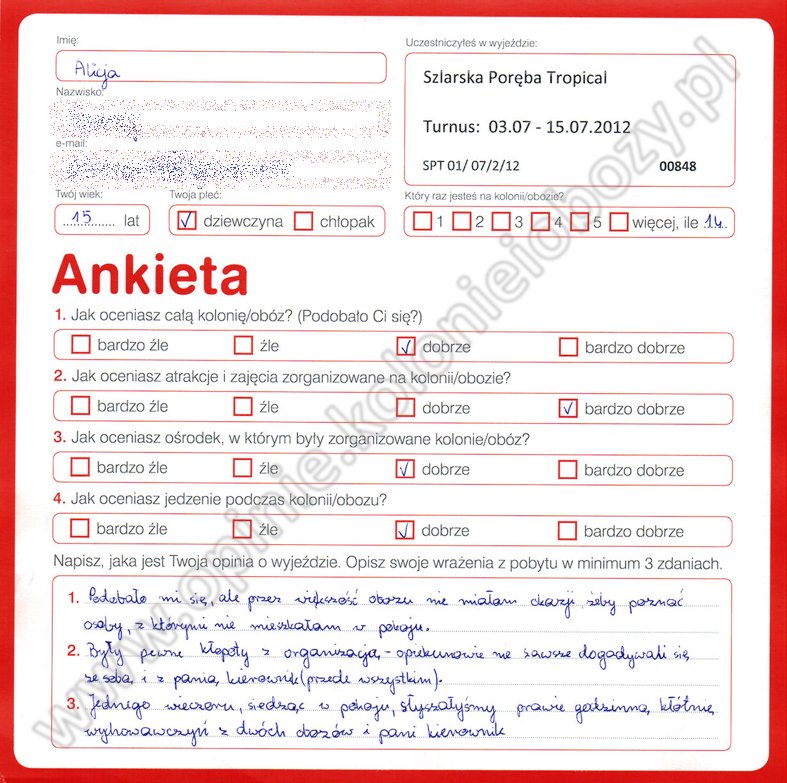 Imię:
Alicja
Nazwisko:
e-mail:
Twój wiek:
15 lat
Twoja płeć:
dziewczyna chłopak
Uczestniczyłeś w wyjeździe:
Szlarska Poręba Tropical
Turnus: 03.07 - 15.07.2012
SPT 01/ 07/2/12 00848
Który raz jesteś na kolonii/obozie?
1 2 3 4 5 więcej, ile 14
Ankieta
1. Jak oceniasz całą kolonię/obóz? (Podobało Ci się?)
bardzo źle źle dobrze bardzo dobrze
2. Jak oceniasz atrakcje i zajęcia zorganizowane na kolonii/obozie?
bardzo źle źle dobrze bardzo dobrze
3. Jak oceniasz ośrodek, w którym były zorganizowane kolonie/obóz?
bardzo źle źle dobrze bardzo dobrze
4. Jak oceniasz jedzenie podczas kolonii/obozu?
bardzo źle źle dobrze bardzo dobrze
Napisz, jaka jest Twoja opinia o wyjeździe. Opisz swoje wrażenia z pobytu w minimum 3 zdaniach.
1. Podobało mi się, ale przez większość obozu nie miałam okazji, żeby poznać
osoby, z którymi nie mieszkałam w pokoju.
2. Były pewne kłopoty z organizacją - opiekunowie nie zawsze dogadywali się
ze sobą i z panią kierownik (przede wszystkim).
3. Jednego wieczoru, siedząc w pokoju, słyszałyśmy prawie godzinną kłótnię
wychowawczyń z dwóch obozów i pani kierownik
www.opinie.kolonieiobozy.pl